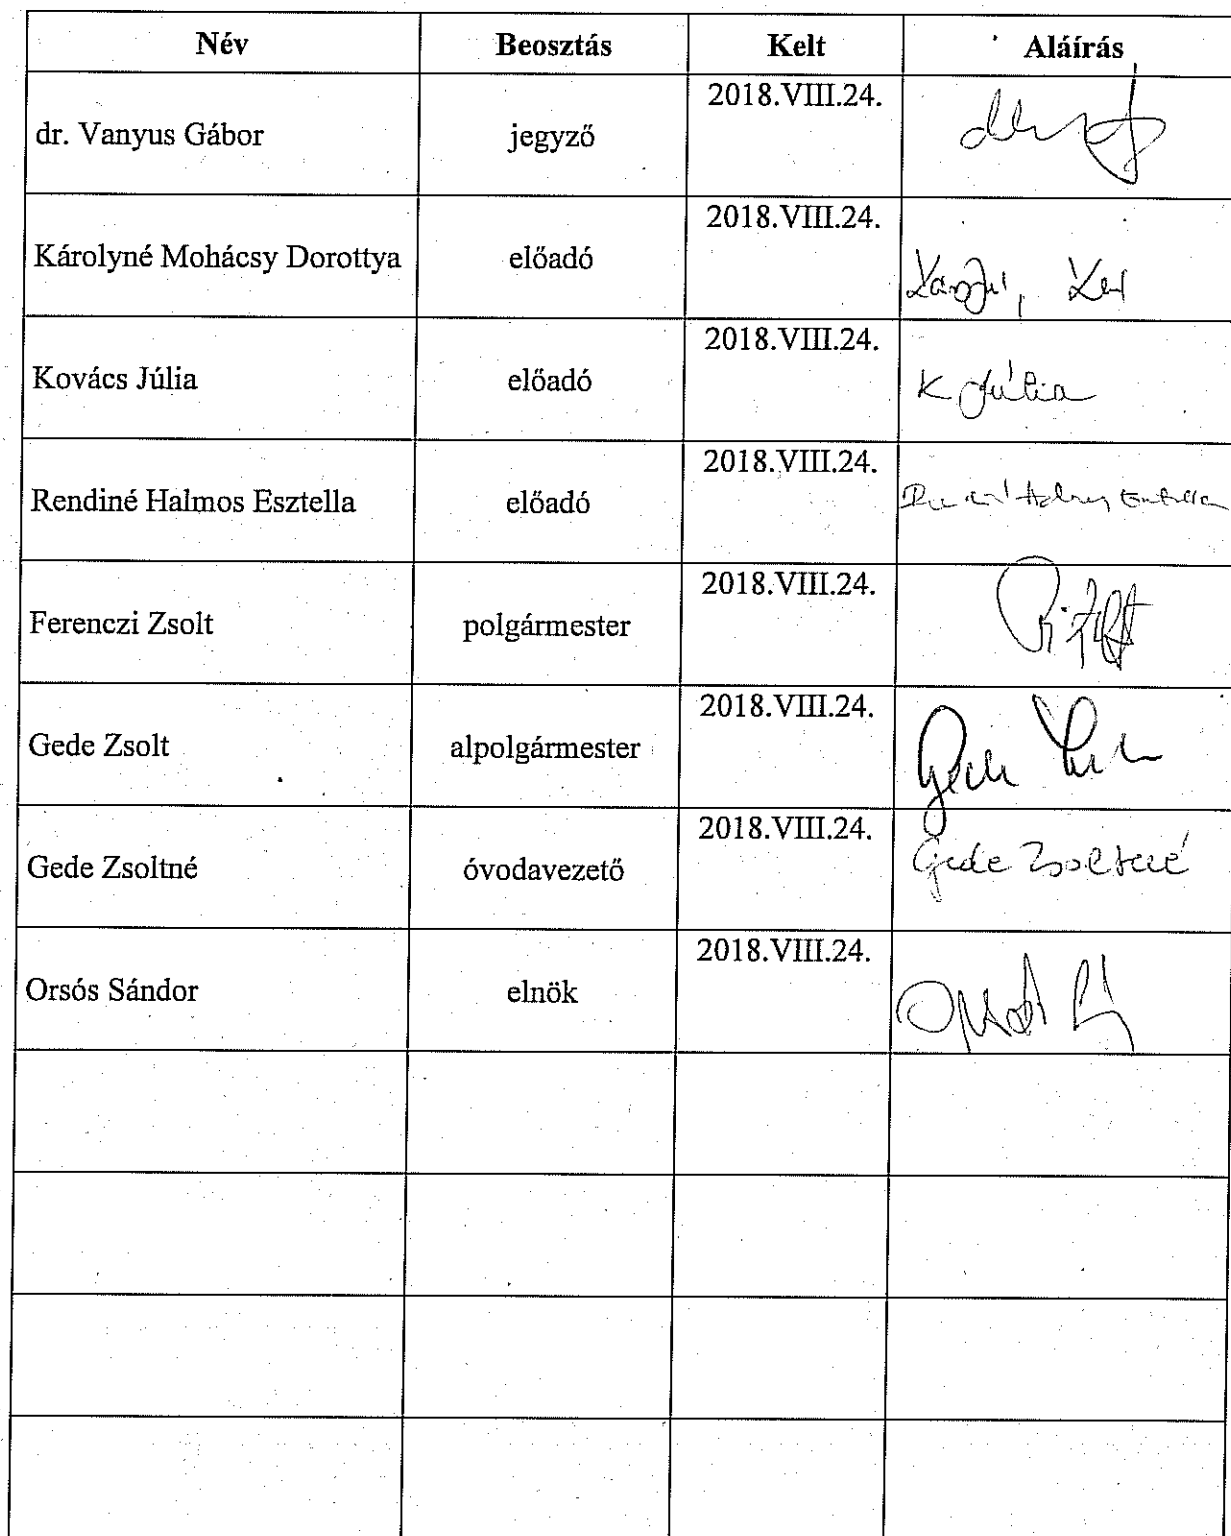 Név Beosztás Kelt Aláírás
dr. Vanyus Gábor jegyző 2018.VIII.24.
Károlyné Mohácsy Dorottya előadó 2018.VIII.24.
Kovács Júlia előadó 2018.VIII.24. K Júlia
Rendiné Halmos Esztella előadó 2018.VIII.24.
Ferenczi Zsolt polgármester 2018.VIII.24.
Gede Zsolt alpolgármester 2018.VIII.24. Gede
Gede Zsoltné óvodavezető 2018.VIII.24. Gede Zsoltné
Orsós Sándor elnök 2018.VIII.24.